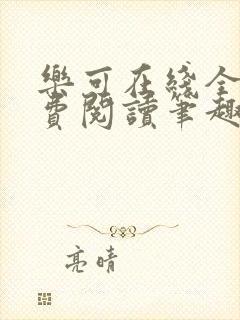 樂可在綫全
費閱讀筆趣
亮晴